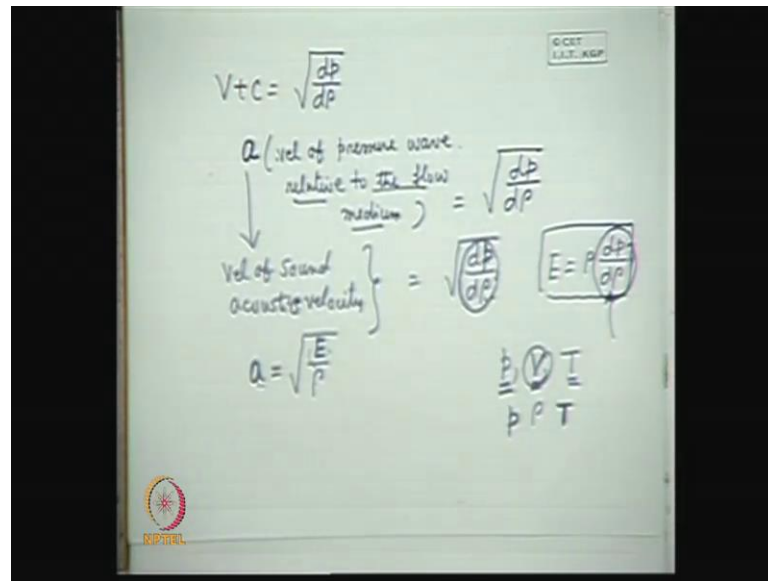 © CET
I.I.T. KGP
V+C = √(dp/dρ)
a (vel of pressure wave
relative to the flow
medium) = √(dp/dρ)
vel of sound
acoustic velocity } = √(dp/dρ)
E = ρ dp/dρ
a = √(E/ρ)
p, V, T
p ρ T
NPTEL